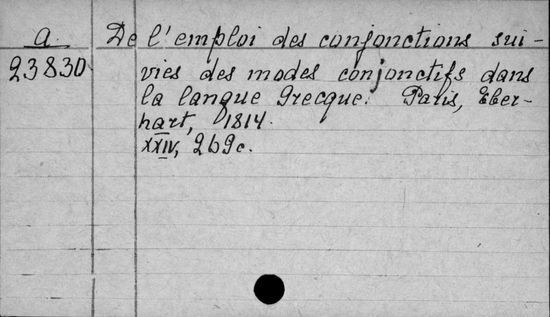 a
23830
De l'emploi des conjonctions sui-
vies des modes conjonctifs dans
la langue Grecque. Paris, Eber-
hart, 1814.
XXIV, 269c.